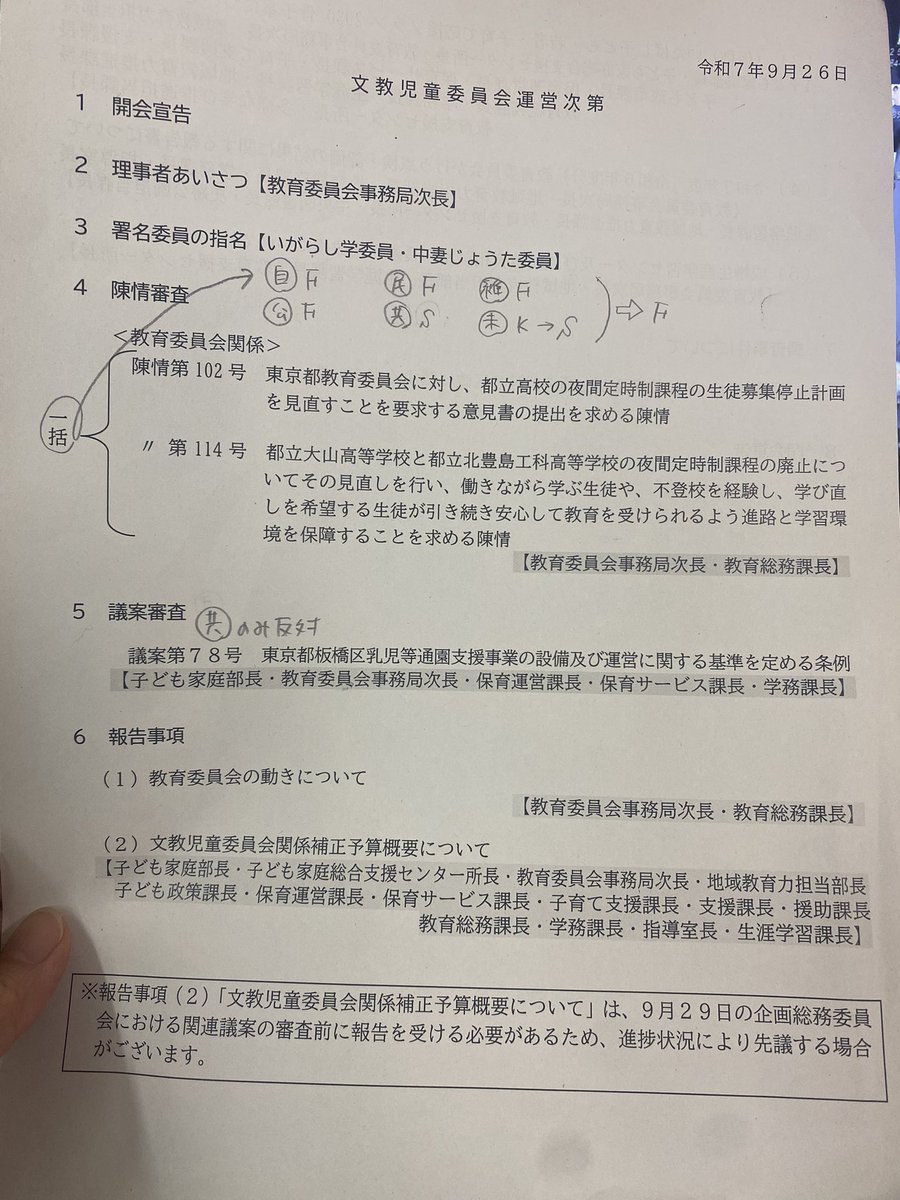 令和7年9月26日
文教児童委員会運営次第
1 開会宣告
2 理事者あいさつ【教育委員会事務局次長】
3 署名委員の指名【いがらし学委員・中妻じょうた委員】
自 F 民 F 維 F
4 陳情審査
公 F 共 S 未 K→S ⇨ F
<教育委員会関係>
一括
陳情第102号 東京都教育委員会に対し、都立高校の夜間定時制課程の生徒募集停止計画
を見直すことを要求する意見書の提出を求める陳情
〃 第114号 都立大山高等学校と都立北豊島工科高等学校の夜間定時制課程の廃止につ
いてその見直しを行い、働きながら学ぶ生徒や、不登校を経験し、学び直
しを希望する生徒が引き続き安心して教育を受けられるよう進路と学習環
境を保障することを求める陳情
【教育委員会事務局次長・教育総務課長】
5 議案審査 共のみ反対
議案第78号 東京都板橋区乳児等通園支援事業の設備及び運営に関する基準を定める条例
【子ども家庭部長・教育委員会事務局次長・保育運営課長・保育サービス課長・学務課長】
6 報告事項
(1)教育委員会の動きについて
【教育委員会事務局次長・教育総務課長】
(2)文教児童委員会関係補正予算概要について
【子ども家庭部長・子ども家庭総合支援センター所長・教育委員会事務局次長・地域教育力担当部長
子ども政策課長・保育運営課長・保育サービス課長・子育て支援課長・支援課長・援助課長
教育総務課長・学務課長・指導室長・生涯学習課長】
※報告事項(2)「文教児童委員会関係補正予算概要について」は、9月29日の企画総務委員
会における関連議案の審査前に報告を受ける必要があるため、進捗状況により先議する場合
がございます。